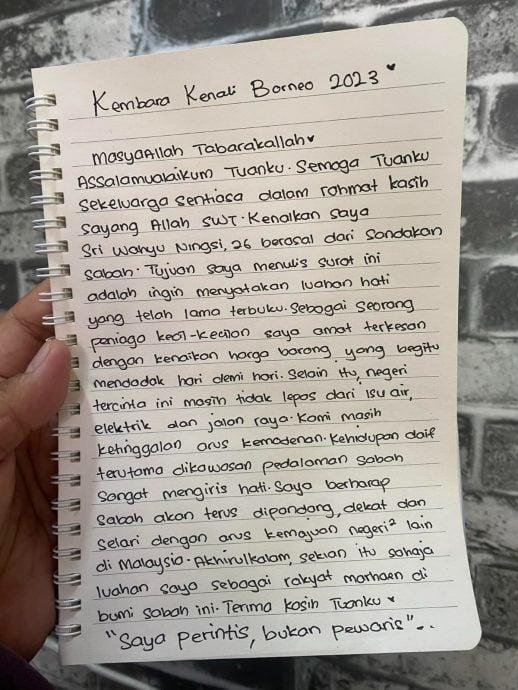 Kembara Kenali Borneo 2023 ♥
MasyaAllah Tabarakallah ♥
Assalamualaikum Tuanku. Semoga Tuanku
sekeluarga sentiasa dalam rahmat kasih
sayang Allah SWT. Kenalkan saya
Sri Wahyu Ningsi, 26 berasal dari Sandakan
Sabah. Tujuan saya menulis surat ini
adalah ingin menyatakan luahan hati
yang telah lama terbuku. Sebagai seorang
peniaga kecil-kecilan saya amat terkesan
dengan kenaikan harga barang yang begitu
mendadak hari demi hari. Selain itu, negeri
tercinta ini masih tidak lepas dari isu air,
elektrik dan jalan raya. Kami masih
ketinggalan arus kemodenan. Kehidupan daif
terutama dikawasan pedalaman Sabah
sangat mengiris hati. Saya berharap
Sabah akan terus dipandang, dekat dan
selari dengan arus kemajuan negeri² lain
di Malaysia. Akhirulkalam, sekian itu sahaja
luahan saya sebagai rakyat marhaen di
bumi Sabah ini. Terima kasih Tuanku ♥
"Saya perintis, bukan pewaris"..